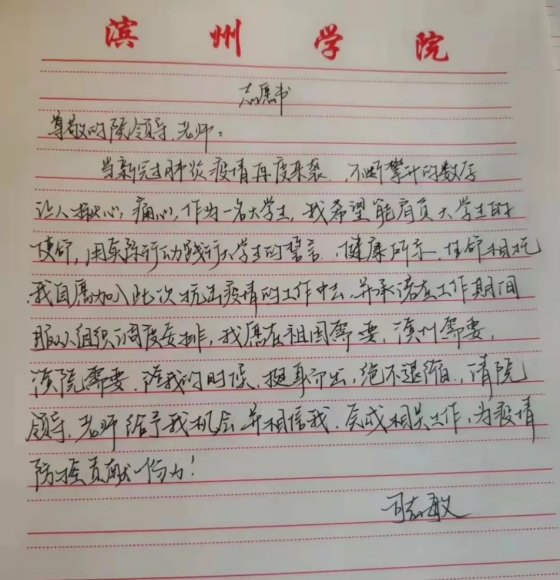 滨州学院
志愿书
尊敬的院领导、老师：
当新冠肺炎疫情再度来袭，不断攀升的数字
让人揪心，痛心，作为一名大学生，我希望能肩负大学生的
使命，用实际行动践行大学生的誓言，健康所系，性命相托
我自愿加入此次抗击疫情的工作中去，并承诺在工作期间
服从组织调度安排，我愿在祖国需要，滨州需要，
滨院需要 我的时候，挺身而出，绝不退缩，请院
领导、老师给予我机会并相信我，完成相关工作，为疫情
防控贡献一份力！